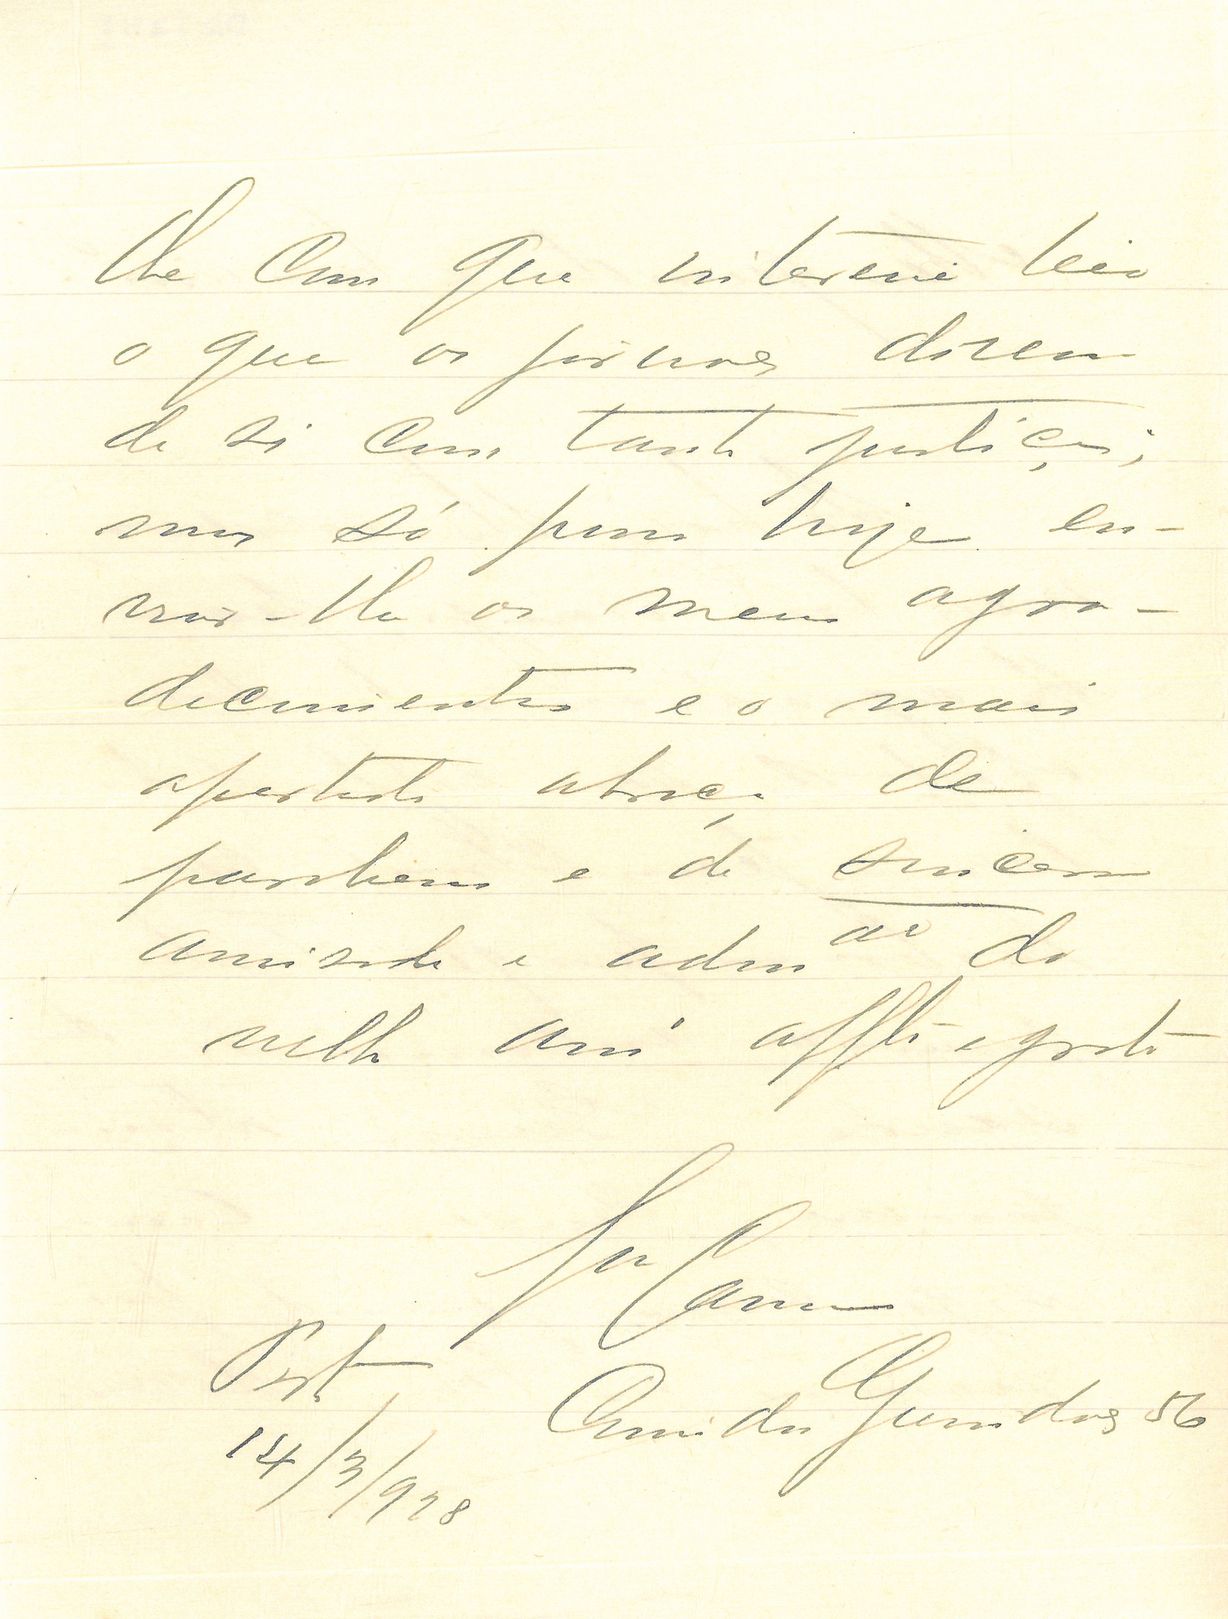 lhe com que interesse leio
o que os jornaes dizem
de si com tanta justiça;
mas só para hoje en-
viar-lhe os meus agra-
decimentos e o mais
apertado abraço de
parabens e de sincera
amisade e adm ão do
velho am° aff° e grato
José
Porto
14/3/928
56